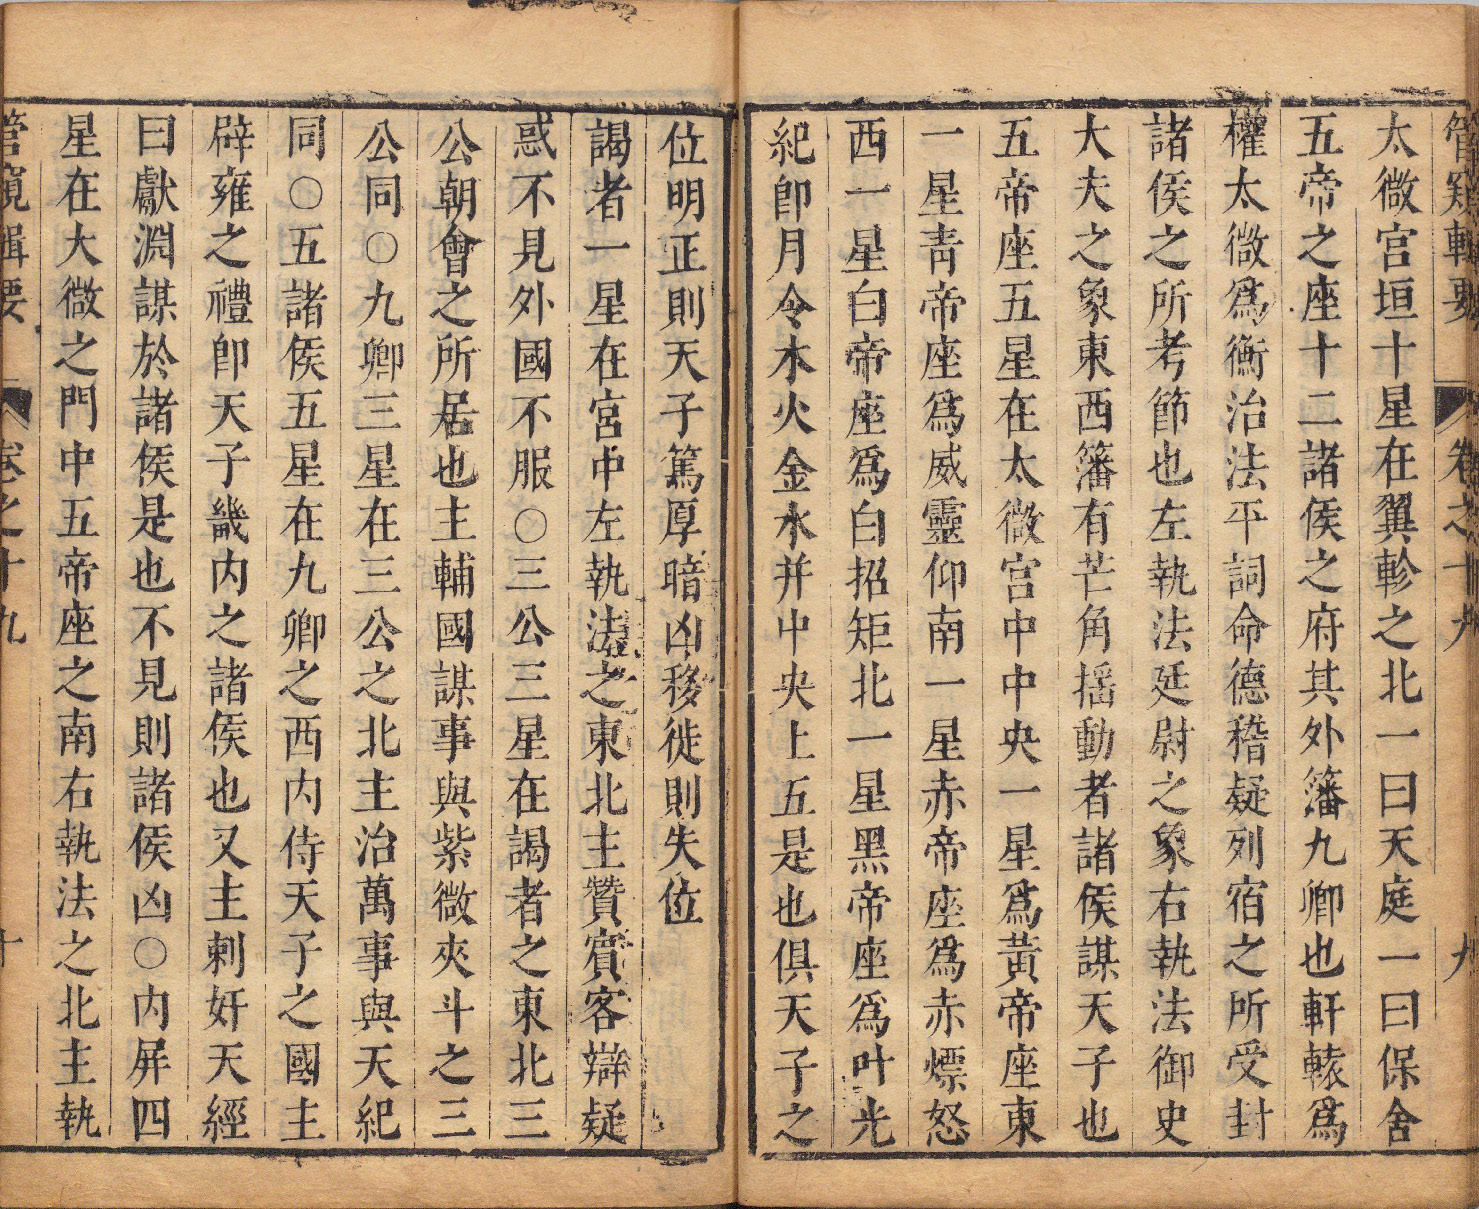 管窺輯要 卷之十九 九
太微宮垣十星在翼軫之北一曰天庭一曰保舍
五帝之座十二諸侯之府其外籓九卿也軒轅爲
權太微爲衡治法平詞命德稽疑列宿之所受封
諸侯之所考節也左執法廷尉之象右執法御史
大夫之象東西籓有芒角揺動者諸侯謀天子也
五帝座五星在太微宮中中央一星爲黃帝座東
一星靑帝座爲威靈仰南一星赤帝座爲赤熛怒
西一星白帝座爲白招矩北一星黑帝座爲叶光
紀卽月令木火金水并中央上五是也俱天子之
位明正則天子篤厚暗凶移徙則失位
謁者一星在宮中左執法之東北主贊賓客辯疑
惑不見外國不服○三公三星在謁者之東北三
公朝會之所居也主輔國謀事與紫微夾斗之三
公同○九卿三星在三公之北主治萬事與天紀
同○五諸侯五星在九卿之西內侍天子之國主
辟雍之禮卽天子畿內之諸侯也又主刺奸天經
曰獻淵謀於諸侯是也不見則諸侯凶○內屏四
星在大微之門中五帝座之南右執法之北主執
管窺輯要 卷之十九 十